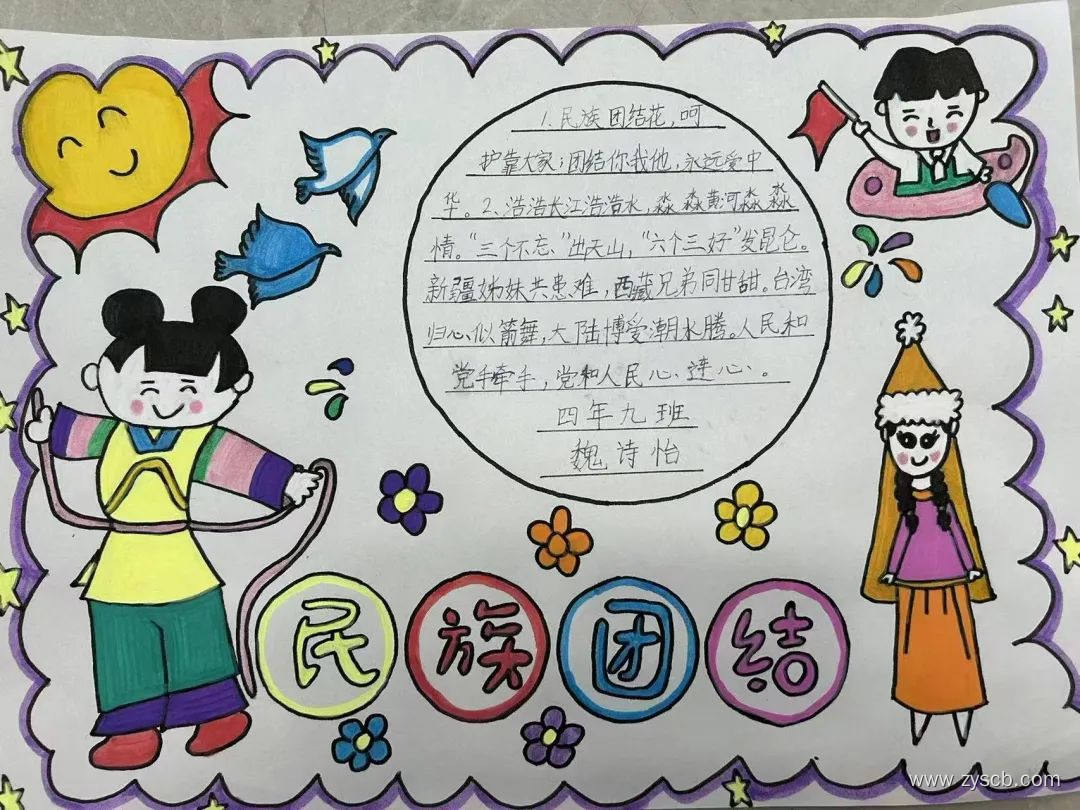 1、民族团结花,呵
护靠大家;团结你我他,永远爱中
华。2、浩浩长江浩浩水,淼淼黄河淼淼
情。“三个不忘”出天山,“六个三好”发昆仑。
新疆姊妹共患难,西藏兄弟同甘甜。台湾
归心似箭舞,大陆博受潮水腾。人民和
党手牵手,党和人民心连心。
四年九班
魏诗怡
民族团结
www.zyscb.com